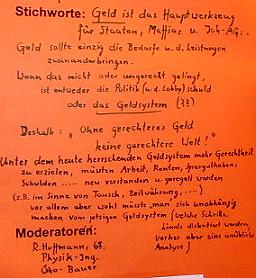 Stichworte: Geld ist das Hauptwerkzeug
für Staaten, Maffias u. Ich-AGs.
Geld sollte einzig die Bedarfe u. d. Leistungen
zueinanderbringen.
Wenn das nicht oder ungerecht gelingt,
ist entweder die Politik (u. d. Lobby) schuld
oder das Geldsystem (??)
Deshalb: "Ohne gerechteres Geld
keine gerechtere Welt!"
Unter dem heute herrschenden Geldsystem mehr Gerechtheit
zu erzielen, müssten Arbeit, Renten, Sparguthaben,
Schulden ..... neu verstanden u. geregelt werden
(z.B. im Sinne von Tausch, Zeitwährung, ....)
vor allem aber wohl müsste "man" sich unabhängig
machen vom jetzigen Geldsystem (welche Schritte,
könnte diskutiert werden
vorher aber eine
Analyse)
Moderatoren:
R. Hoffmann, 67,
Physik-Ing.
Öko-Bauer